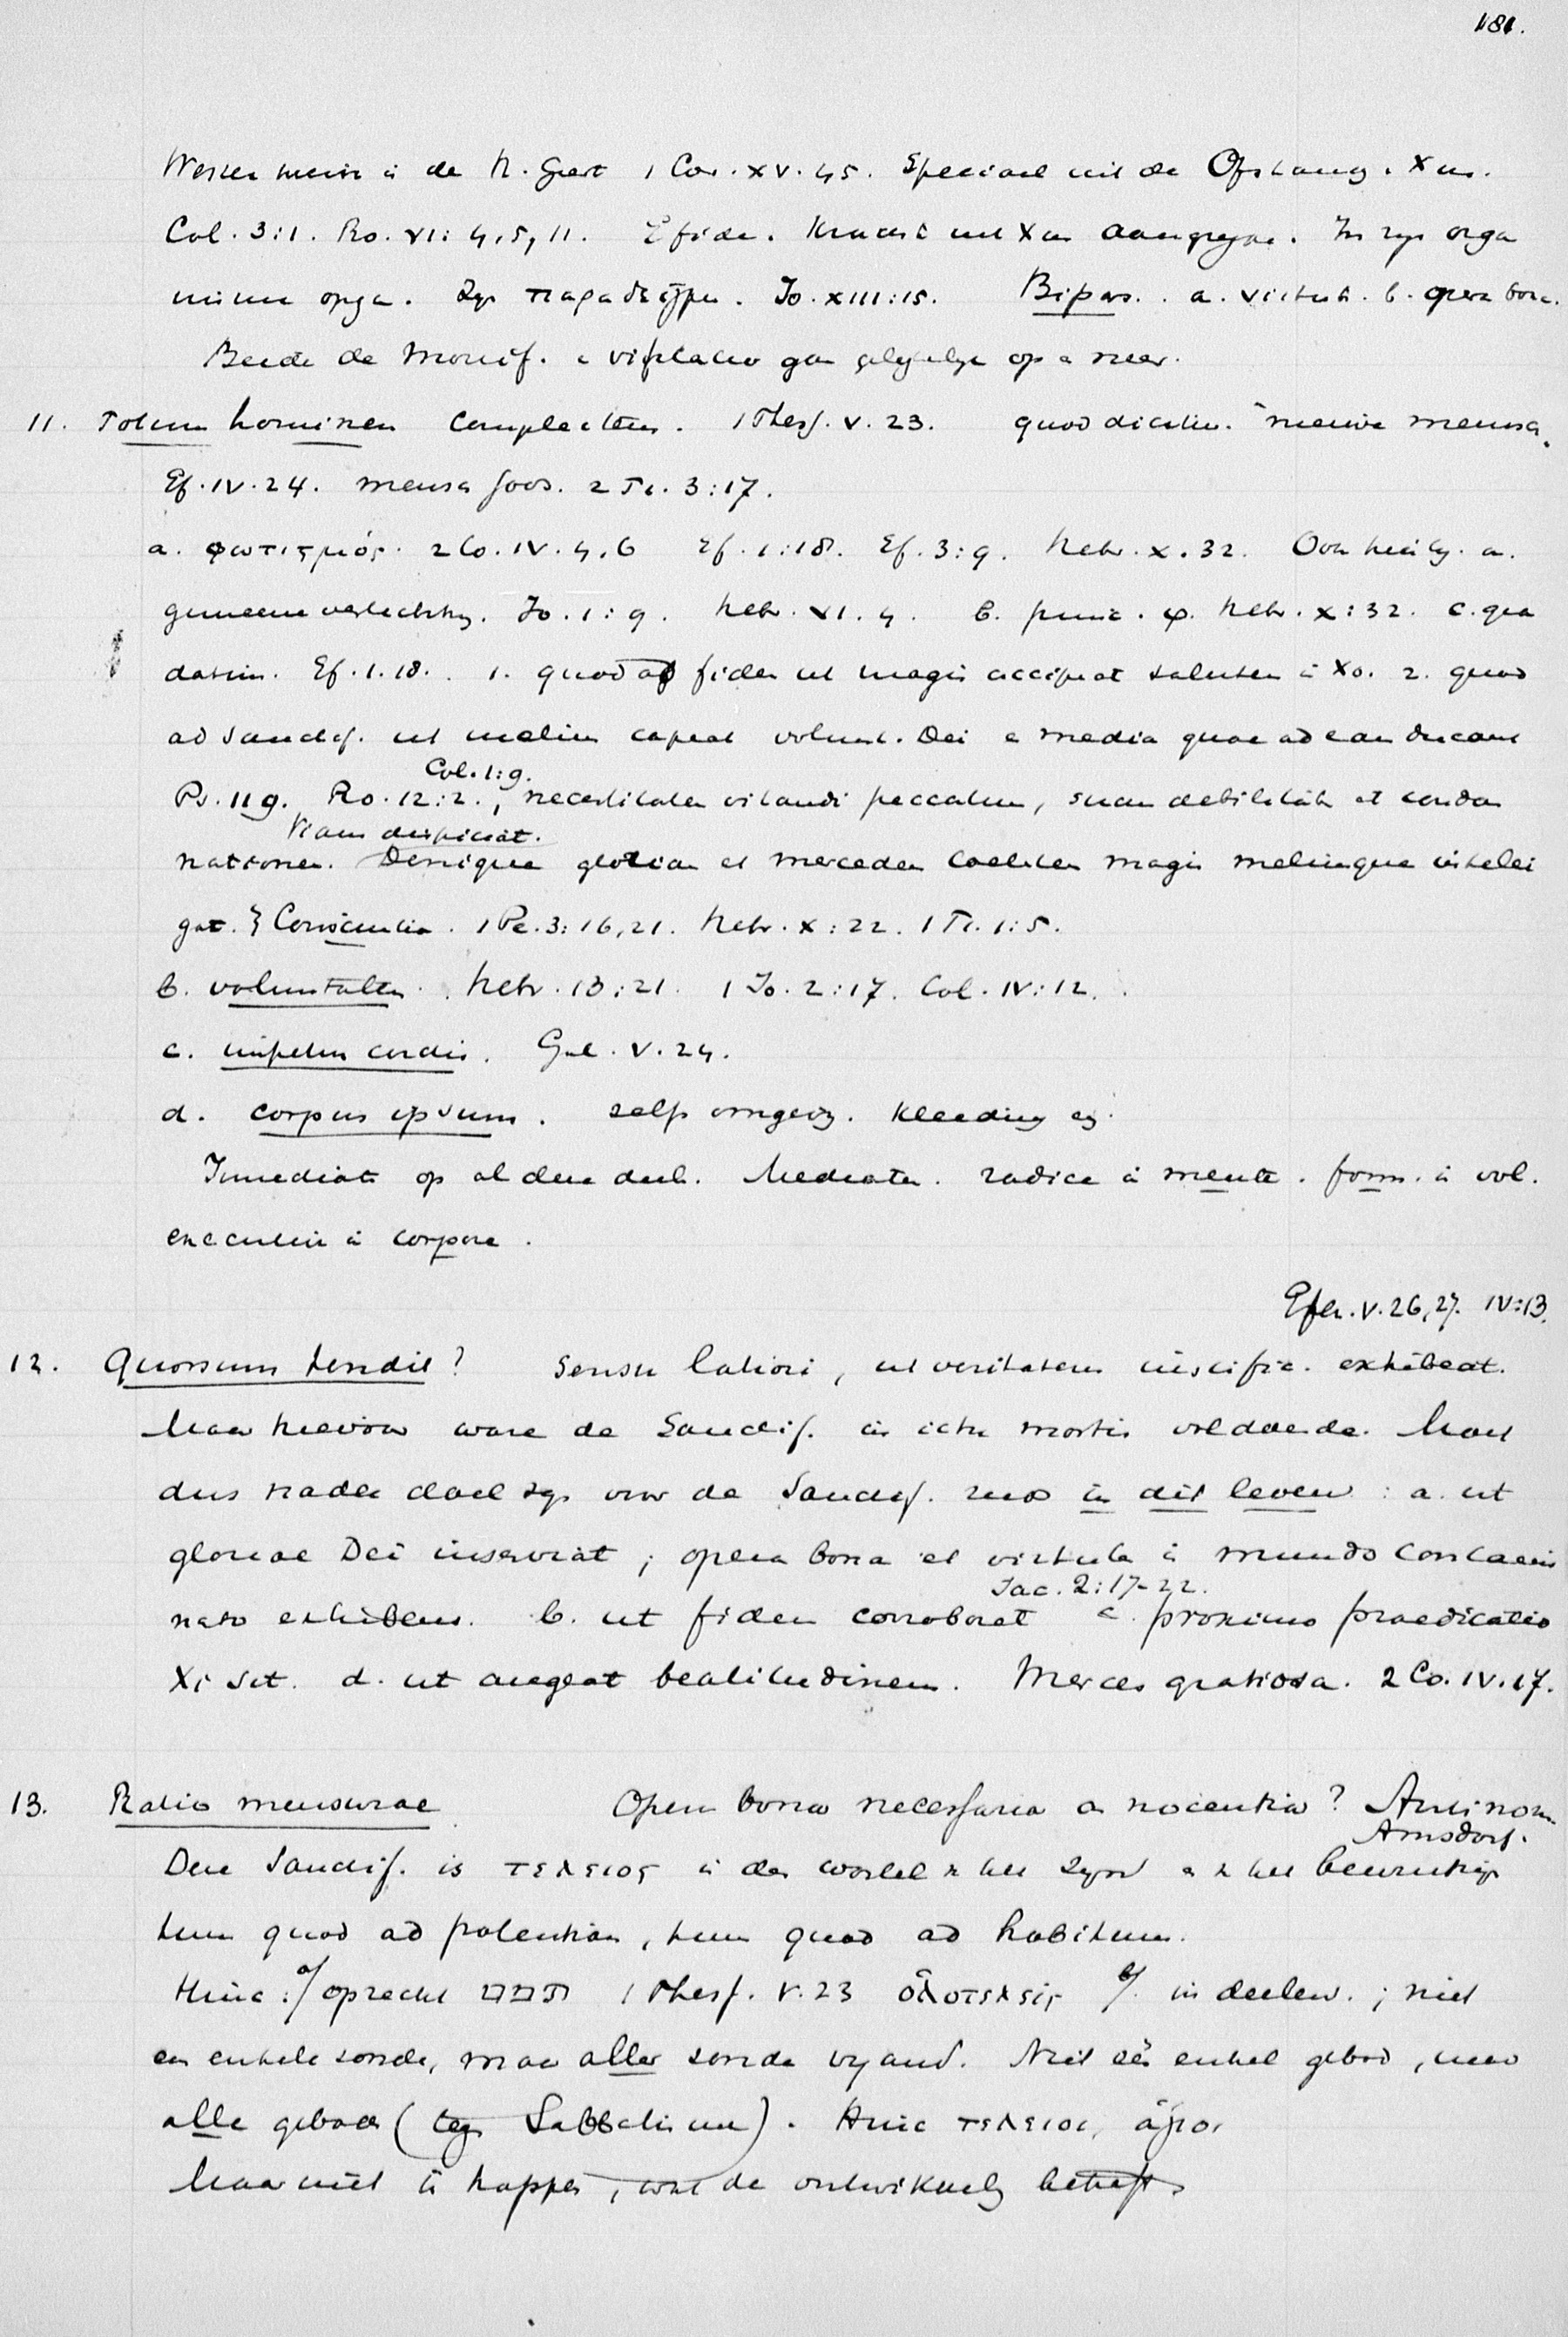 181.
de H. Geest 1 Cor. XV. 45. Speciael uit de Opstang. Xus.
Col. 3:1. Ro. VI: 4, 5, 11. E fide. Kracht uit Xus aangegrepen. In zyn orga
nisme opga. Zyn παραδειγμα. Jo. XIII:15. Bipars. a. virtut. b. opera bona.
Beide de Mortif. e vificatio gaan gelykelyk op en neer.
11. Totum hominem complectens. 1 Thess. V. 23. quod dicitur. nieuwe mensch.
Ef. IV. 24. mensch Gods. 2 Ti. 3:17.
a. φωτισμός. 2 Co. IV. 4, 6 Ef. 1:18. Ef. 3:9. Hebr. X. 32. a.
gemeene verlichting. Jo. 1:9. Hebr. VI. 4. b. φ. Hebr. X:32. c. gra
datim. Ef. 1. 18. . 1. quod ad fidem ut magis accipiat salutem à Xo. 2. quod
ad Sanctif. ut melius capiat volunt. Dei e media quae ad eam ducant
Col. 1:9.
Ps. 119. Ro. 12:2., necessitatem vitandi peccatum, suam debilitat. et conda
viam despiciat.
nationem. Denique gloriam et mercedem coelestem magis meliusque intelli
gat. } Conscientia. 1 Pe. 3:16, 21. Hebr. X:22. 1 Ti. 1:5.
b. voluntatem. Hebr. 13:21. 1 Jo. 2:17. Col. IV:12.
c. impetum cordis. Gal. V. 24.
d. corpus ipsum. zelfs omgeving. Kleeding
Immediate op al deze deel. Mediate. radice à mente. form. à vol.
executie à corpore.
Efes. V. 26, 27. IV:13.
12. Quorsum tendit? Sensu latiori, ut veritatem justific. exhibeat.
Maar hiervoor ware de Sanctif. in ictu mortis voldoende. Moet
dus nader doel zyn voor de Sanctif. reeds in dit leven: a. ut
gloriae Dei inserviat; opera bona et virtute à mundo contami
Jac. 2:17-22.
nato exhibens. b. ut fidem corroboret c. proximo praedicatio
Xi sit. d. ut augeat beatitudinem. Merces gratiosa. 2 Co. IV. 17.
13. Ratio mensurae Opera bona necessaria an nocentia? Antinom.
Amsdorf.
Deze Sanctif. is τελειος in den wortel
tum quod ad potentiam, tum quod ad habitum.
Hinc: a/ oprecht 1 Thess. V. 23 ὁλοτελεις b/. in deelen.; niet
een enkele zonde, maar aller zonde vyand. Niet één enkel gebod, maar
alle geboden (tegen Sabbatisme). Hinc τελειοι, ἁγιοι
Maar niet in trappen, wat de ontwikkeling betreft.